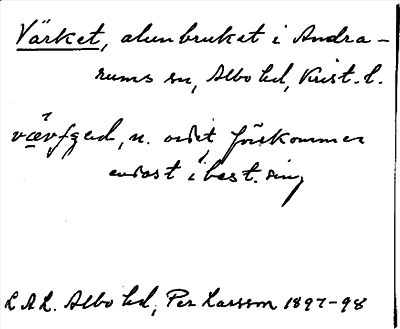 Värket, alunbruket i Andra-
rums sn, Albo hd, Krist. l.
n. ordet förekommer
endast i best. sing
L.A.L. Albo hd, Per Larsson 1897-98